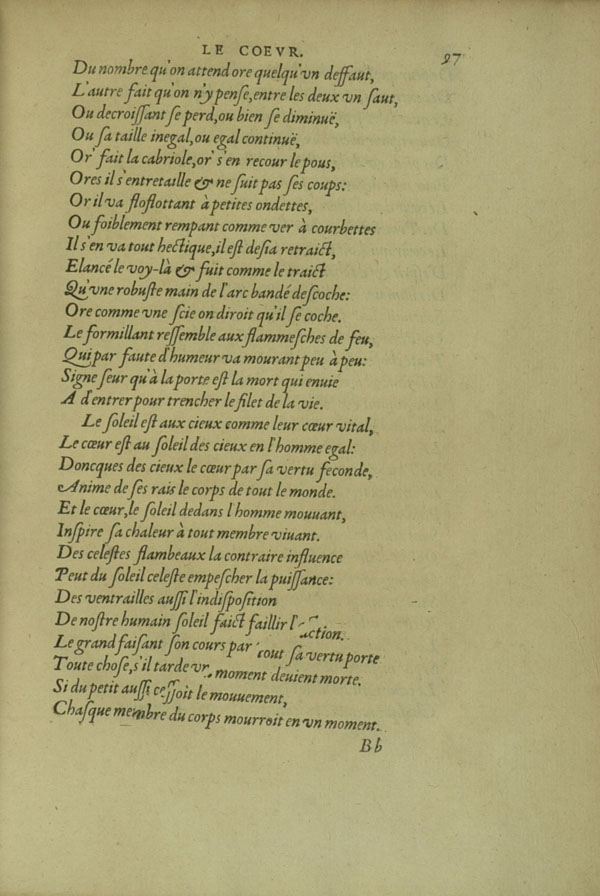 LE COEVR.
97
Du nombre qu'on attend ore quelqu'vn deffaut,
L'autre fait qu'on n'y pense, entre les deux vn saut,
Ou decroiſſant ſe perd, ou bien ſe diminuë,
Ou ſa taille inegal, ou egal continuë,
Or' fait la cabriole, or' s'en recour le pous,
Ores il s'entretaille & ne ſuit pas ſes coups:
Or il va floflottant à petites ondettes,
Ou foiblement rempant comme ver à courbettes
Il s'en va tout hectique, il eſt deſia retraict,
Elancé le voy-là & fuit comme le traict
Qu'vne robuſte main de l'arc bandé deſcoche:
Ore comme vne ſcie on diroit qu'il ſe coche.
Le formillant reſſemble aux flammeſches de feu,
Qui par faute d'humeur va mourant peu à peu:
Signe ſeur qu'à la porte eſt la mort qui enuie
A d'entrer pour trencher le filet de la vie.
Le ſoleil eſt aux cieux comme leur cœur vital,
Le cœur eſt au ſoleil des cieux en l'homme egal:
Doncques des cieux le cœur par ſa vertu feconde,
Anime de ſes rais le corps de tout le monde.
Et le cœur, le ſoleil dedans l'homme mouuant,
Inſpire ſa chaleur à tout membre viuant.
Des celeſtes flambeaux la contraire influence
Peut du ſoleil celeſte empeſcher la puiſſance:
Des ventrailles auſſi l'indiſpoſition
De noſtre humain ſoleil faict faillir l'action.
Le grand faiſant ſon cours par tout ſa vertu porte
Toute choſe, s'il tarde vn moment deuient morte.
Si du petit auſſi ceſſoit le mouuement,
Chaſque membre du corps mourroit en vn moment.
Bb